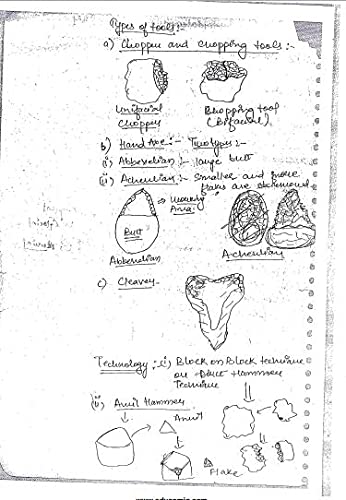 Types of tools:-
a) Chopper and chopping tools:-
Unifacial Chopping tool
Chopper (Bifacial)
b) Hand Axe:- Two types:-
i) Abbevelian:- large butt
ii) Acheulian:- Smaller and more
flaks are
→ Working
Area
Butt
Abbevelian Acheulian
c) Cleaver-
Technology:- i) Block on Block technique
or Hammer
Technique
(ii) Anvil Hammer
Anvil
Flake